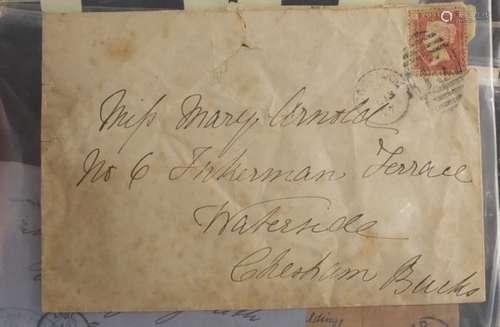 Miss Mary Arnold
No 6 Inkerman Terrace
Waterside
Chesham Bucks